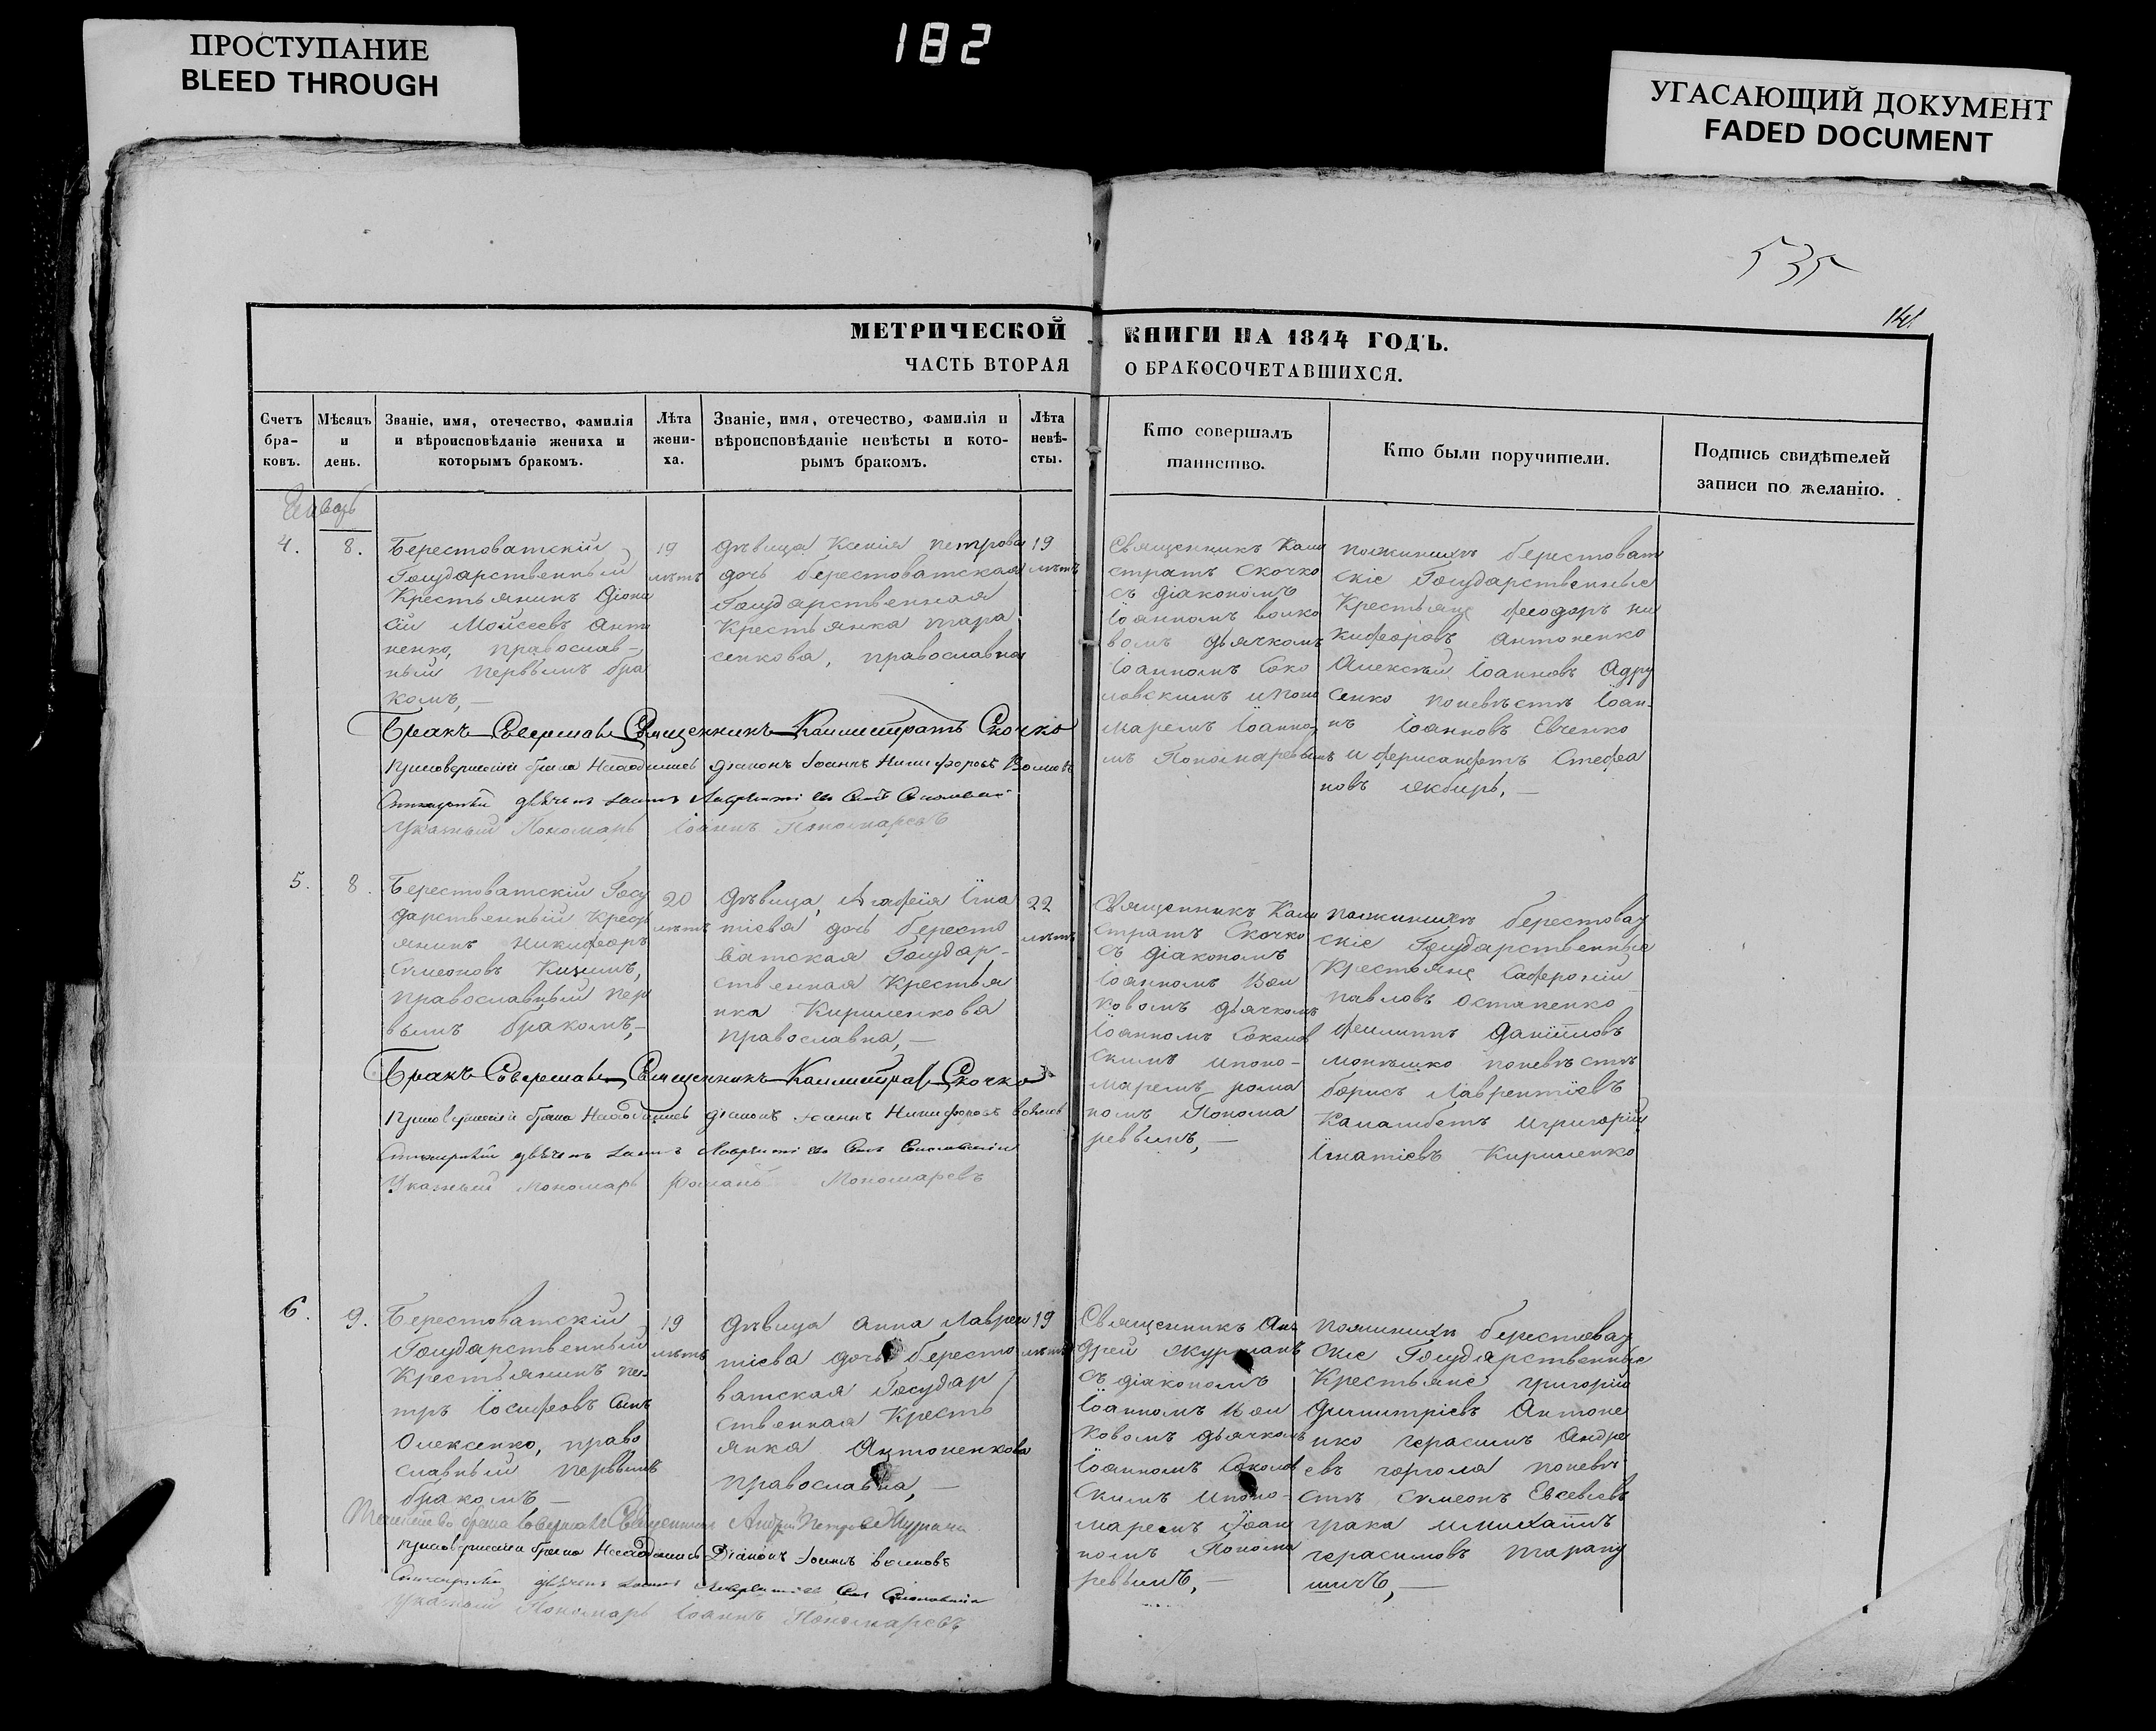 ПРОСТУПАНИЕ
BLEED THROUGH
182
УГАСАЮЩИЙ ДОКУМЕНТ
FADED DOCUMENT
535
141
МЕТРИЧЕСКОЙ КНИГИ НА 1844 ГОДЪ.
ЧАСТЬ ВТОРАЯ О БРАКОСОЧЕТАВШИХСЯ.
Счетъ
бра-
ковъ.
Мѣсяцъ
и
день.
Званіе, имя, отечество, фамилія
и вѣроисповѣданіе жениха и
которымъ бракомъ.
Лѣта
жени-
ха.
Званіе, имя, отечество, фамилія и
вѣроисповѣданіе невѣсты и кото-
рымъ бракомъ.
Лѣта
невѣ-
сты.
Кто совершалъ
таинство.
Кто были поручители.
Подпись свидѣтелей
записи по желанію.
Январь
4.
8.
Берестоватскій
Государственный
Крестьянинъ Діони
сій Моисеевъ Анто
ненко, православ-
ный первымъ бра
комъ,—
19
лѣтъ
Дѣвица Ксенія Петрова
дочь берестоватская
Государственная
Крестьянка Тара
сенкова, православна
19
лѣтъ
Священникъ Кали
стратъ Скочко
съ діакономъ
Іоанномъ Волко
вомъ дьячкомъ
Іоанномъ Соко
ловскимъ и поно
маремъ Іоанно
мъ Пономаревымъ
пожениху берестоват
скіе Государственные
Крестьяне Феодоръ Ни
кифоровъ Антоненко
Алексѣй Іоанновъ Адру
сенко поневѣстѣ Іоан-
нъ Іоанновъ Евченко
и Стефа
новъ —
Бракъ Совершалъ Священникъ Каллистратъ Скочко
При совершеніи брака Находились Діаконъ Іоаннъ Никифоровъ Волковъ
Указный Пономарь Іоаннъ Пономаревъ
5.
8.
Берестоватскій Госу
дарственный Крест
янинъ Никифоръ
Симеоновъ Кизимъ,
православный пер
вымъ бракомъ,—
20
лѣтъ
Дѣвица, Агафія Игна
тіева дочь Бересто
ватская Государ-
ственная Крестья
нка Кириленкова
православна,—
22
лѣтъ
Священникъ Кали
стратъ Скочко
съ діакономъ
Іоанномъ Вол
ковомъ дьячкомъ
Іоанномъ Соколов
скимъ и поно-
маремъ Рома
номъ Понома
ревымъ,—
пожениху берестоват
скіе Государственные
Крестьяне Софроній
Павловъ Остапенко
Филиппъ Даніиловъ
поневѣстѣ
Борисъ Лаврентіевъ
и Григорій
Игнатіевъ Кириленко
Бракъ Совершалъ Священникъ Каллистратъ Скочко
При совершеніи брака Находились Діаконъ Іоаннъ Никифоровъ Волковъ
Указный Пономарь Романъ Пономаревъ
6.
9.
Берестоватскій
Государственный
Крестьянинъ Пе
тръ Іосифовъ Сынъ
Олексенко, право
славный первымъ
бракомъ —
19
лѣтъ
Дѣвица Анна Лаврен
тіева дочь бересто
ватская Государ
ственная Кресть
янка Антоненкова
православна,—
19
лѣтъ
Священникъ Ан
дрей Журманъ
съ діакономъ
Іоанномъ Вол
ковомъ дьячкомъ
Іоанномъ Соколов
скимъ и поно-
маремъ Іоан
номъ Понома
ревымъ,—
пожениху берестоват
скіе Государственные
Крестьяне Григорій
Димитріевъ Антоне
нко Герасимъ Андре
евъ поневѣ
стѣ Симеонъ Евсевіевъ
и Михаилъ
Герасимовъ
Священникъ Андрей
При совершеніи брака Находились Діаконъ Іоаннъ Волковъ
Указный Пономарь Іоаннъ Пономаревъ